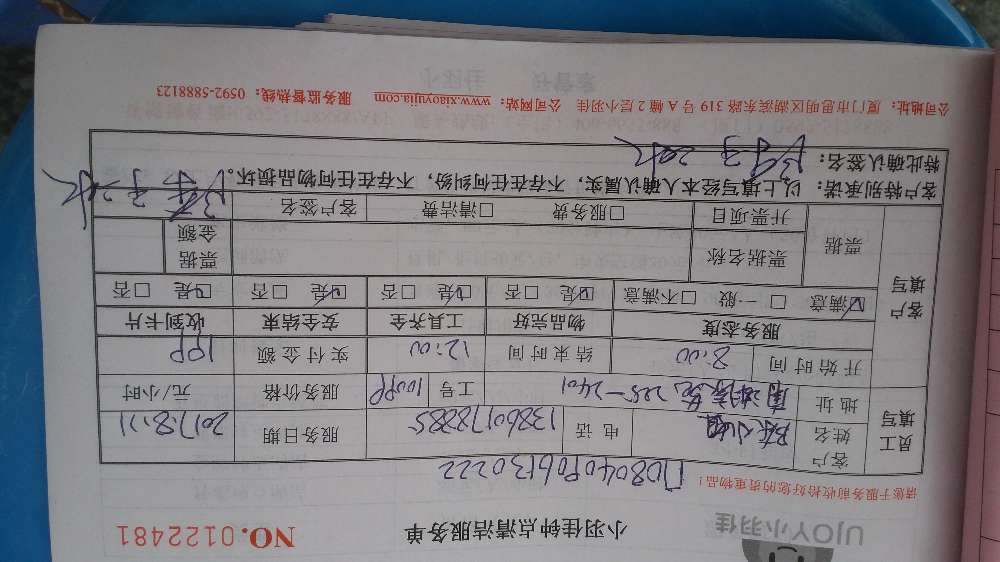 UJOY小羽佳
小羽佳钟点清洁服务单
NO.0122481
请您于服务前收拾好您的贵重物品！
员工填写
客户姓名
陈小姐
电话
13860178885
服务日期
2017.8.11
地址
工号
服务价格
元/小时
开始时间
8:00
结束时间
12:00
实付金额
客户填写
服务态度
物品完好
工具齐全
安全结束
收到卡片
☑满意 □一般 □不满意
☑是 □否
☑是 □否
☑是 □否
☑是 □否
票据
票据名称
票据金额
开票项目
□服务费 □清洁费
客户签名
客户特别承诺：以上填写经本人确认属实，不存在任何纠纷，不存在任何物品损坏。
特此确认签名：
公司地址：厦门市思明区湖滨东路 319 号 A 幢 2 层小羽佳 公司网站：www.xiaoyujia.com 服务监督热线：0592-5888123